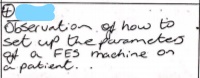 ④
Observation of how to
set up the parameters
of a FES machine on
a patient.